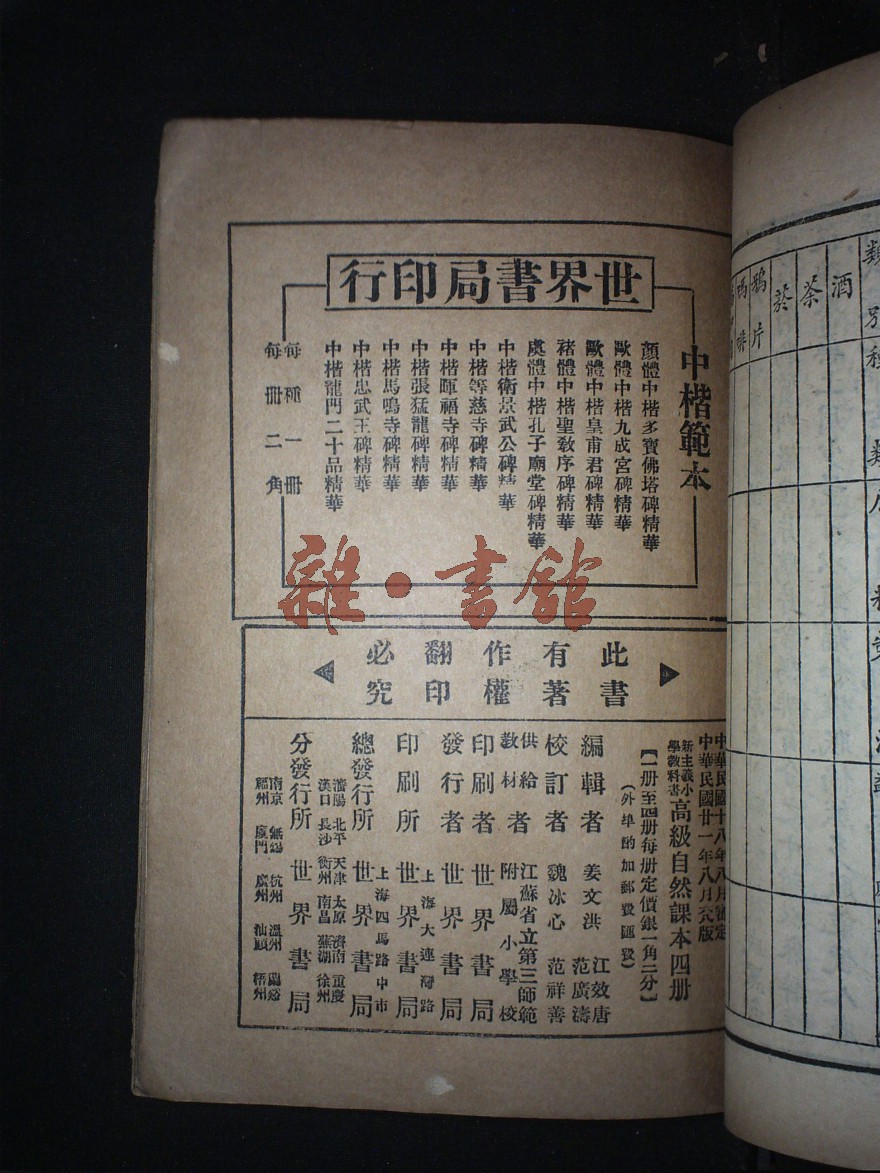 世界書局印行
中楷範本
顏體中楷多寶佛塔碑精華
歐體中楷九成宮碑精華
歐體中楷皇甫君碑精華
褚體中楷聖敎序碑精華
虞體中楷孔子廟堂碑精華
中楷衛景武公碑精華
中楷等慈寺碑精華
中楷暉福寺碑精華
中楷張猛龍碑精華
中楷馬鳴寺碑精華
中楷忠武王碑精華
中楷龍門二十品精華
每種一冊
每冊二角
雜·書館
此書
有著
作權
翻印
必究
中華民國十八年八月審定
中華民國廿一年八月六版
新主義小學教科書
高級自然課本四册
【一册至四册每册定價銀一角二分】
(外埠酌加郵費匯費)
編輯者 姜文洪 江效唐 范廣濤
校訂者 魏冰心 范祥善
供給教材者 江蘇省立第三師範附屬小學校
印刷者 世界書局
發行者 世界書局
印刷所 上海大連灣路 世界書局
總發行所 上海四馬路中市 世界書局
分發行所 世界書局
瀋陽 北平 天津 太原 濟南 重慶
漢口 長沙 衡州 南昌 蕪湖 徐州
南京 無錫 杭州 溫州 蘭谿
福州 廈門 廣州 汕頭 梧州
類別
酒
茶
菸
鴉片